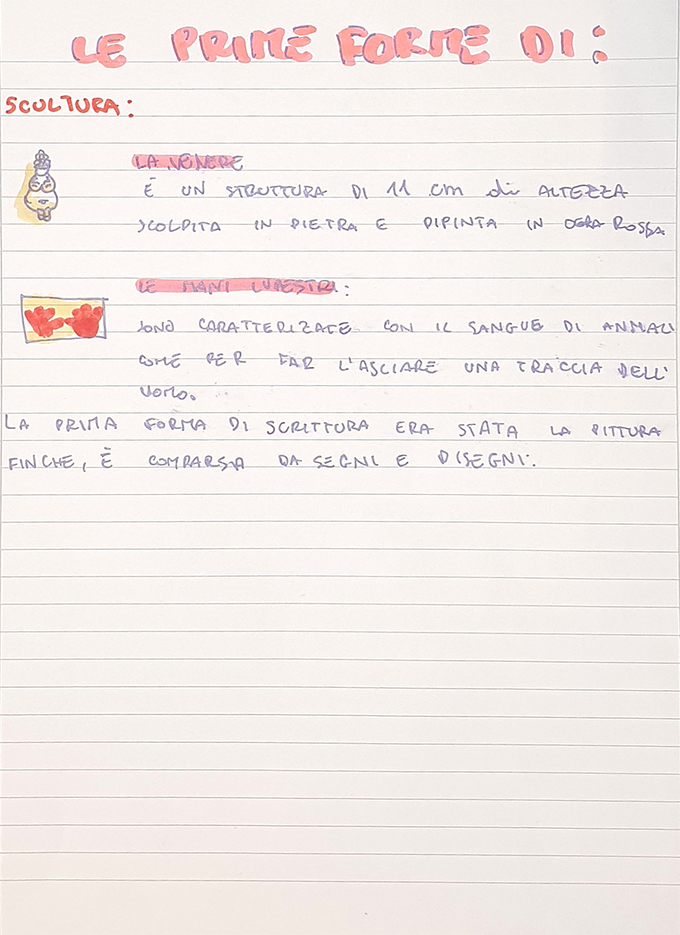 LE PRIME FORME DI:
SCULTURA:
LA VENERE
È UN STRUTTURA DI 11 cm di ALTEZZA
SCOLPITA IN PIETRA E DIPINTA IN OCRA ROSSA.
LE MANI LUPESTRI:
SONO CARATTERIZATE CON IL SANGUE DI ANIMALI
COME PER FAR L'ASCIARE UNA TRACCIA DELL'
UOMO.
LA PRIMA FORMA DI SCRITTURA ERA STATA LA PITTURA
FINCHE, È COMPARSA DA SEGNI E DISEGNI.